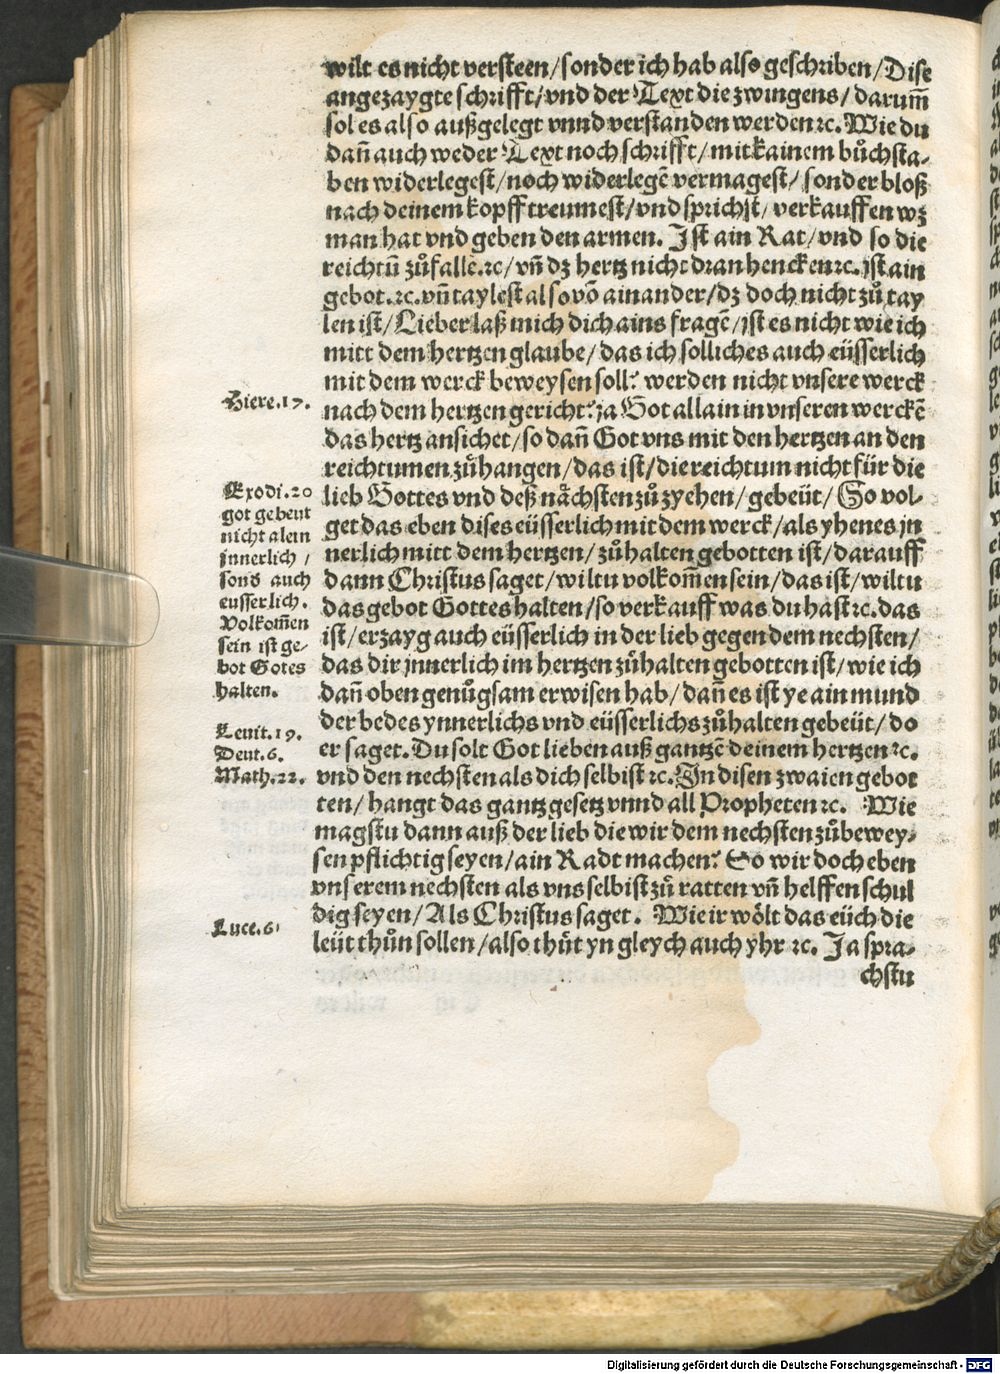 wilt es nicht versteen/sonder ich hab also geschriben/Dise
angezaygte schrifft/vnd der Text die zwingens/darum̃
sol es also außgelegt vnnd verstanden werden ꝛc. Wie du
dañ auch weder Text noch schrifft/mit kainem bůchsta-
ben widerlegest/noch widerlegẽ vermagest/sonder bloß
nach deinem kopff treumest/vnd sprichst/verkauffen wz
man hat vnd geben den armen. Ist ain Rat/vnd so die
reichtũ zůfalle.ꝛc/vñ dz hertz nicht dran hencken ꝛc. ist ain
gebot.ꝛc.vñ taylest also võ ainander/dz doch nicht zů tay
len ist/Lieber laß mich dich ains fragẽ/ist es nicht wie ich
mitt dem hertzen glaube/das ich solliches auch eüsserlich
mit dem werck beweysen soll? werden nicht vnsere werck
nach dem hertzen gericht? ja Got allain in vnseren werckẽ
das hertz ansichet/so dañ Got vns mit den hertzen an den
reichtumen zůhangen/das ist/die reichtum nicht für die
lieb Gottes vnd deß nächsten zů zyehen/gebeüt/So vol-
get das eben dises eüsserlich mit dem werck/als yhenes jn
nerlich mitt dem hertzen/zůhalten gebotten ist/darauff
dann Christus saget/wiltu volkom̃en sein/das ist/wiltu
das gebot Gottes halten/so verkauff was du hast ꝛc. das
ist/erzayg auch eüsserlich in der lieb gegen dem nechsten/
das dir jnnerlich im hertzen zůhalten gebotten ist/wie ich
dañ oben genůgsam erwisen hab/dañ es ist ye ain mund
der bedes ynnerlichs vnd eüsserlichs zůhalten gebeüt/do
er saget. Du solt Got lieben auß gantzẽ deinem hertzen ꝛc.
vnd den nechsten als dich selbist ꝛc. In disen zwaien gebot
ten/hangt das gantz gesetz vnnd all Propheten ꝛc. Wie
magstu dann auß der lieb die wir dem nechsten zůbewey-
sen pflichtig seyen/ain Radt machen? So wir doch eben
vnserem nechsten als vns selbist zů ratten vñ helffen schul
dig seyen/Als Christus saget. Wie ir wölt das eüch die
leüt thůn sollen/also thůt yn gleych auch yhr ꝛc. Ja spra-
chstu
Hiere.17.
Exodi.20
got gebeut
nicht alein
jnnerlich/
sond auch
eusserlich.
Volkom̃en
sein ist ge-
bot Gotes
halten.
Leuit.19.
Deut.6.
Math.22.
Luce.6.
Digitalisierung gefördert durch die Deutsche Forschungsgemeinschaft - DFG